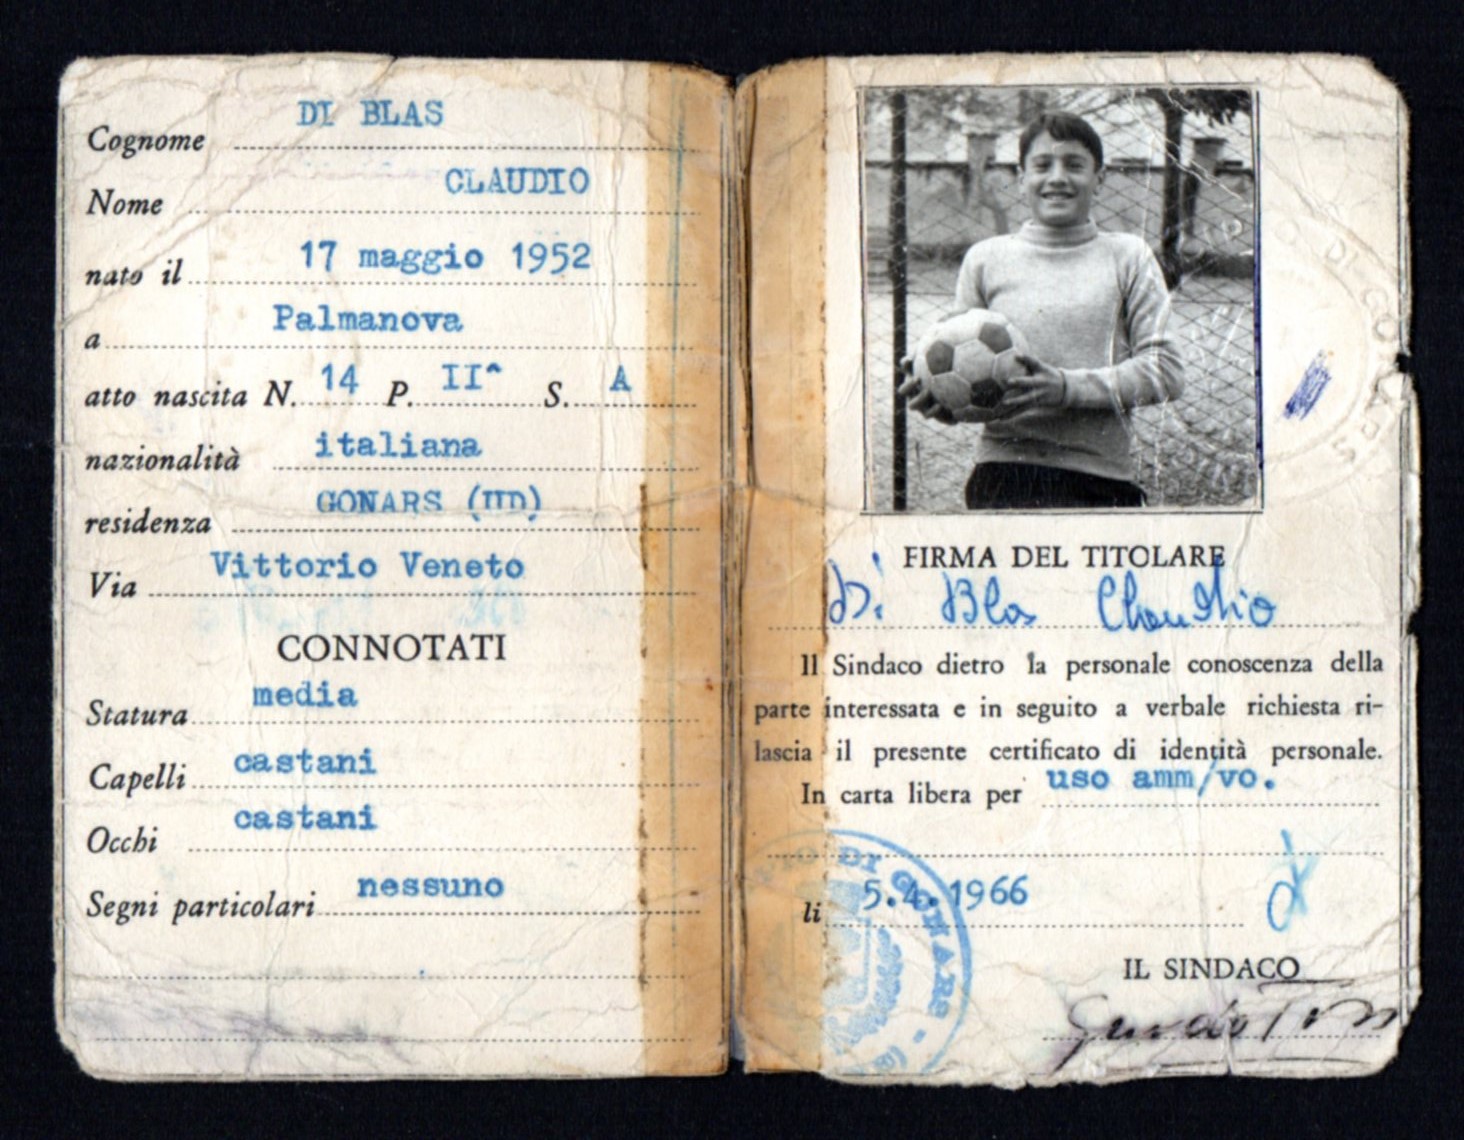 Cognome DI BLAS
Nome CLAUDIO
nato il 17 maggio 1952
a Palmanova
atto nascita N. 14 P. II^ S. A
nazionalità italiana
residenza GONARS (UD)
Via Vittorio Veneto
CONNOTATI
Statura media
Capelli castani
Occhi castani
Segni particolari nessuno
FIRMA DEL TITOLARE
Di Blas Claudio
Il Sindaco dietro la personale conoscenza della
parte interessata e in seguito a verbale richiesta ri-
lascia il presente certificato di identità personale.
In carta libera per uso amm/vo.
li 5.4.1966
IL SINDACO
DI GONARS
DI GONARS